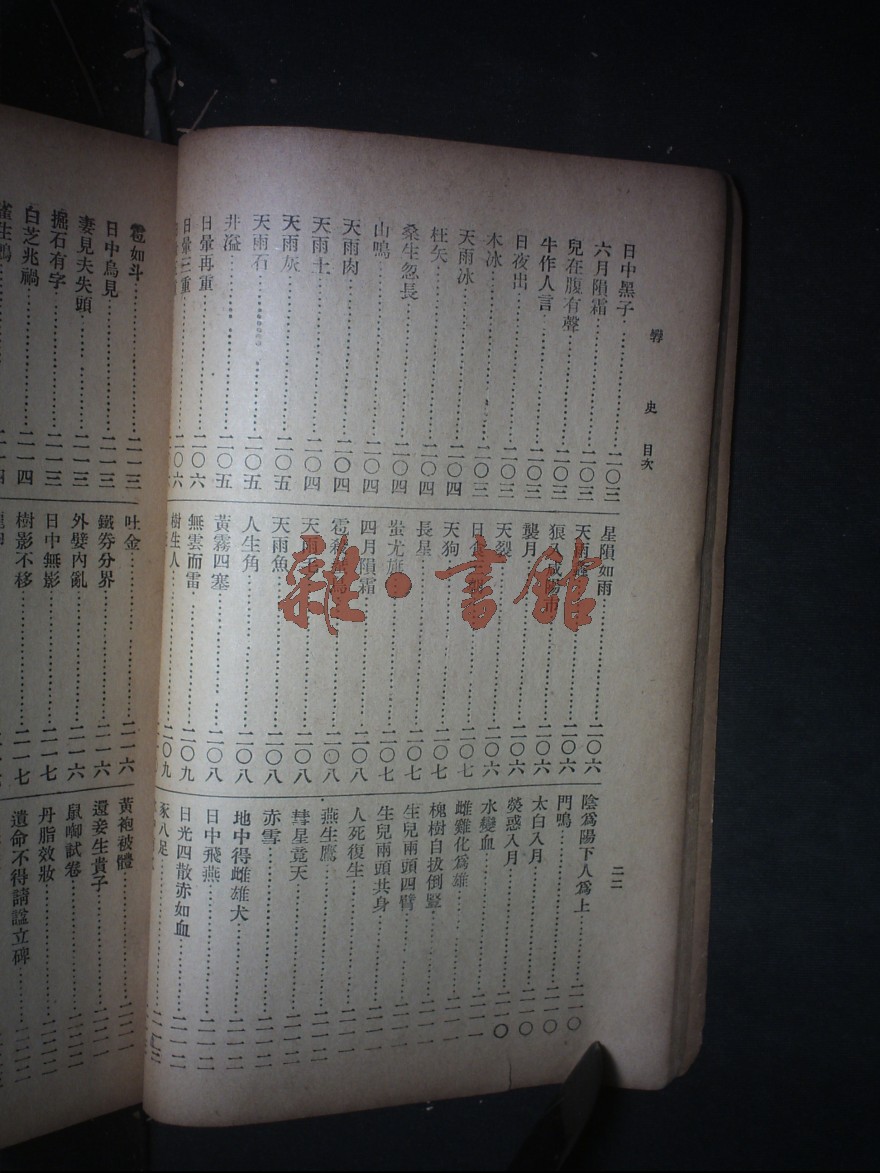 史 目次
日中黑子 二〇三
六月隕霜 二〇三
兒在腹有聲 二〇三
牛作人言 二〇三
日夜出 二〇三
木冰 二〇三
天雨冰 二〇四
枉矢 二〇四
桑生忽長 二〇四
山鳴 二〇四
天雨肉 二〇四
天雨土 二〇四
天雨灰 二〇五
天雨石 二〇五
井溢 二〇五
日暈再重 二〇六
日暈三重 二〇六
星隕如雨 二〇六
天雨 二〇六
狼入咸陽市 二〇六
襲月 二〇六
天裂 二〇六
日食 二〇七
天狗 二〇七
長星 二〇七
蚩尤旗 二〇七
四月隕霜 二〇八
雹殺 二〇八
天雨毛 二〇八
天雨魚 二〇八
人生角 二〇八
黃霧四塞 二〇八
無雲而雷 二〇九
樹生人 二〇九
陰爲陽下人爲上 二一〇
門鳴 二一〇
太白入月 二一〇
熒惑入月 二一〇
水變血 二一〇
雌雞化爲雄 二一一
槐樹自拔倒豎 二一一
生兒兩頭四臂 二一一
生兒兩頭共身 二一一
人死復生 二一一
燕生鷹 二一二
彗星竟天 二一二
赤雪 二一二
地中得雌雄犬 二一二
日中飛燕 二一二
日光四散赤如血 二一二
豕八足
二二
雹如斗 二一三
日中烏見 二一三
妻見夫失頭 二一三
掘石有字 二一三
白芝兆禍 二一四
雀生鴨 二一四
吐金 二一六
鐵券分界 二一六
外嬖內亂 二一六
日中無影 二一七
樹影不移 二一七
黃袍被體 二二一
還妾生貴子
鼠啣試卷
丹脂效妝
遺命不得請諡立碑
雜·書館